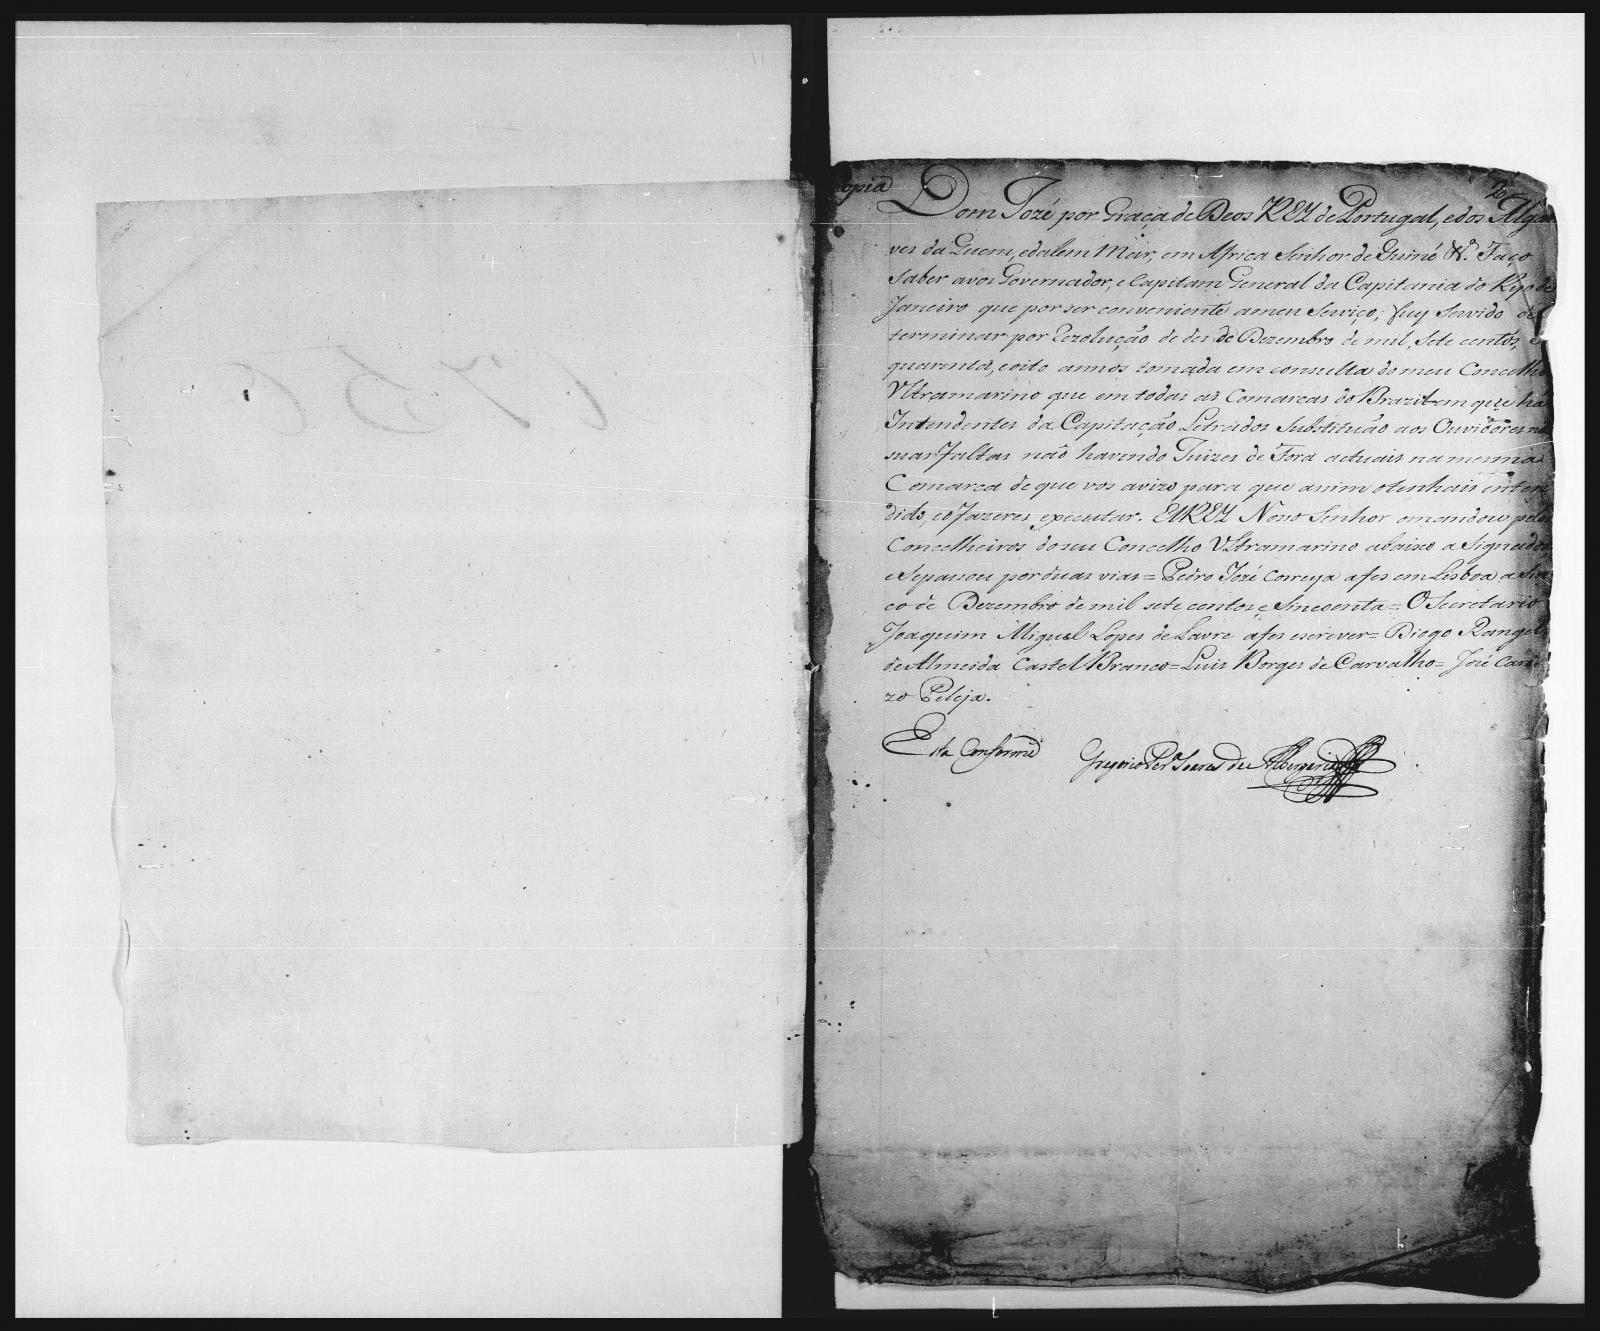 Copia
2
Dom Jozé por Graça de Deos REY de Portugal, e dos Algar
ves da quem, e dalem Mar, em Africa Senhor de Guiné &.ª Faço
saber avos Governador, e Capitam General da Capitania do Ryo de
Janeiro que por ser conveniente a meu Serviço; fuy Servido de
terminar por Rezolução de des de Dezembro de mil, Sete centos, e
quarenta, e oito annos tomada em consulta do meu Concelho
Ultramarino que em todas as Comarcas do Brazil em que há
Intendentes da Capitação Letrados Substituão aos Ouvidores nas
suas faltas não havendo Juizes de Fora actuais na mesma
Comarca de que vos avizo para que assim o tenhais enten
dido, e o fazeres executar. ElREY Nosso Senhor o mandou pelos
Concelheiros do seu Concelho Ultramarino abaixo a Signados,
e Se passou por duas vias = Pedro Jozé Correya a fes em Lisboa a Sin
co de Dezembro de mil sete centos e Sincoenta = O Secretario
Joaquim Miguel Lopes de Lavre a fes escrever = Diogo Rangel
de Almeida Castel Branco = Luis Borges de Carvalho = Jozé Cardo
zo Peleja.
Está Conforme Gregorio Per.ª Soares de Albergaria
1756